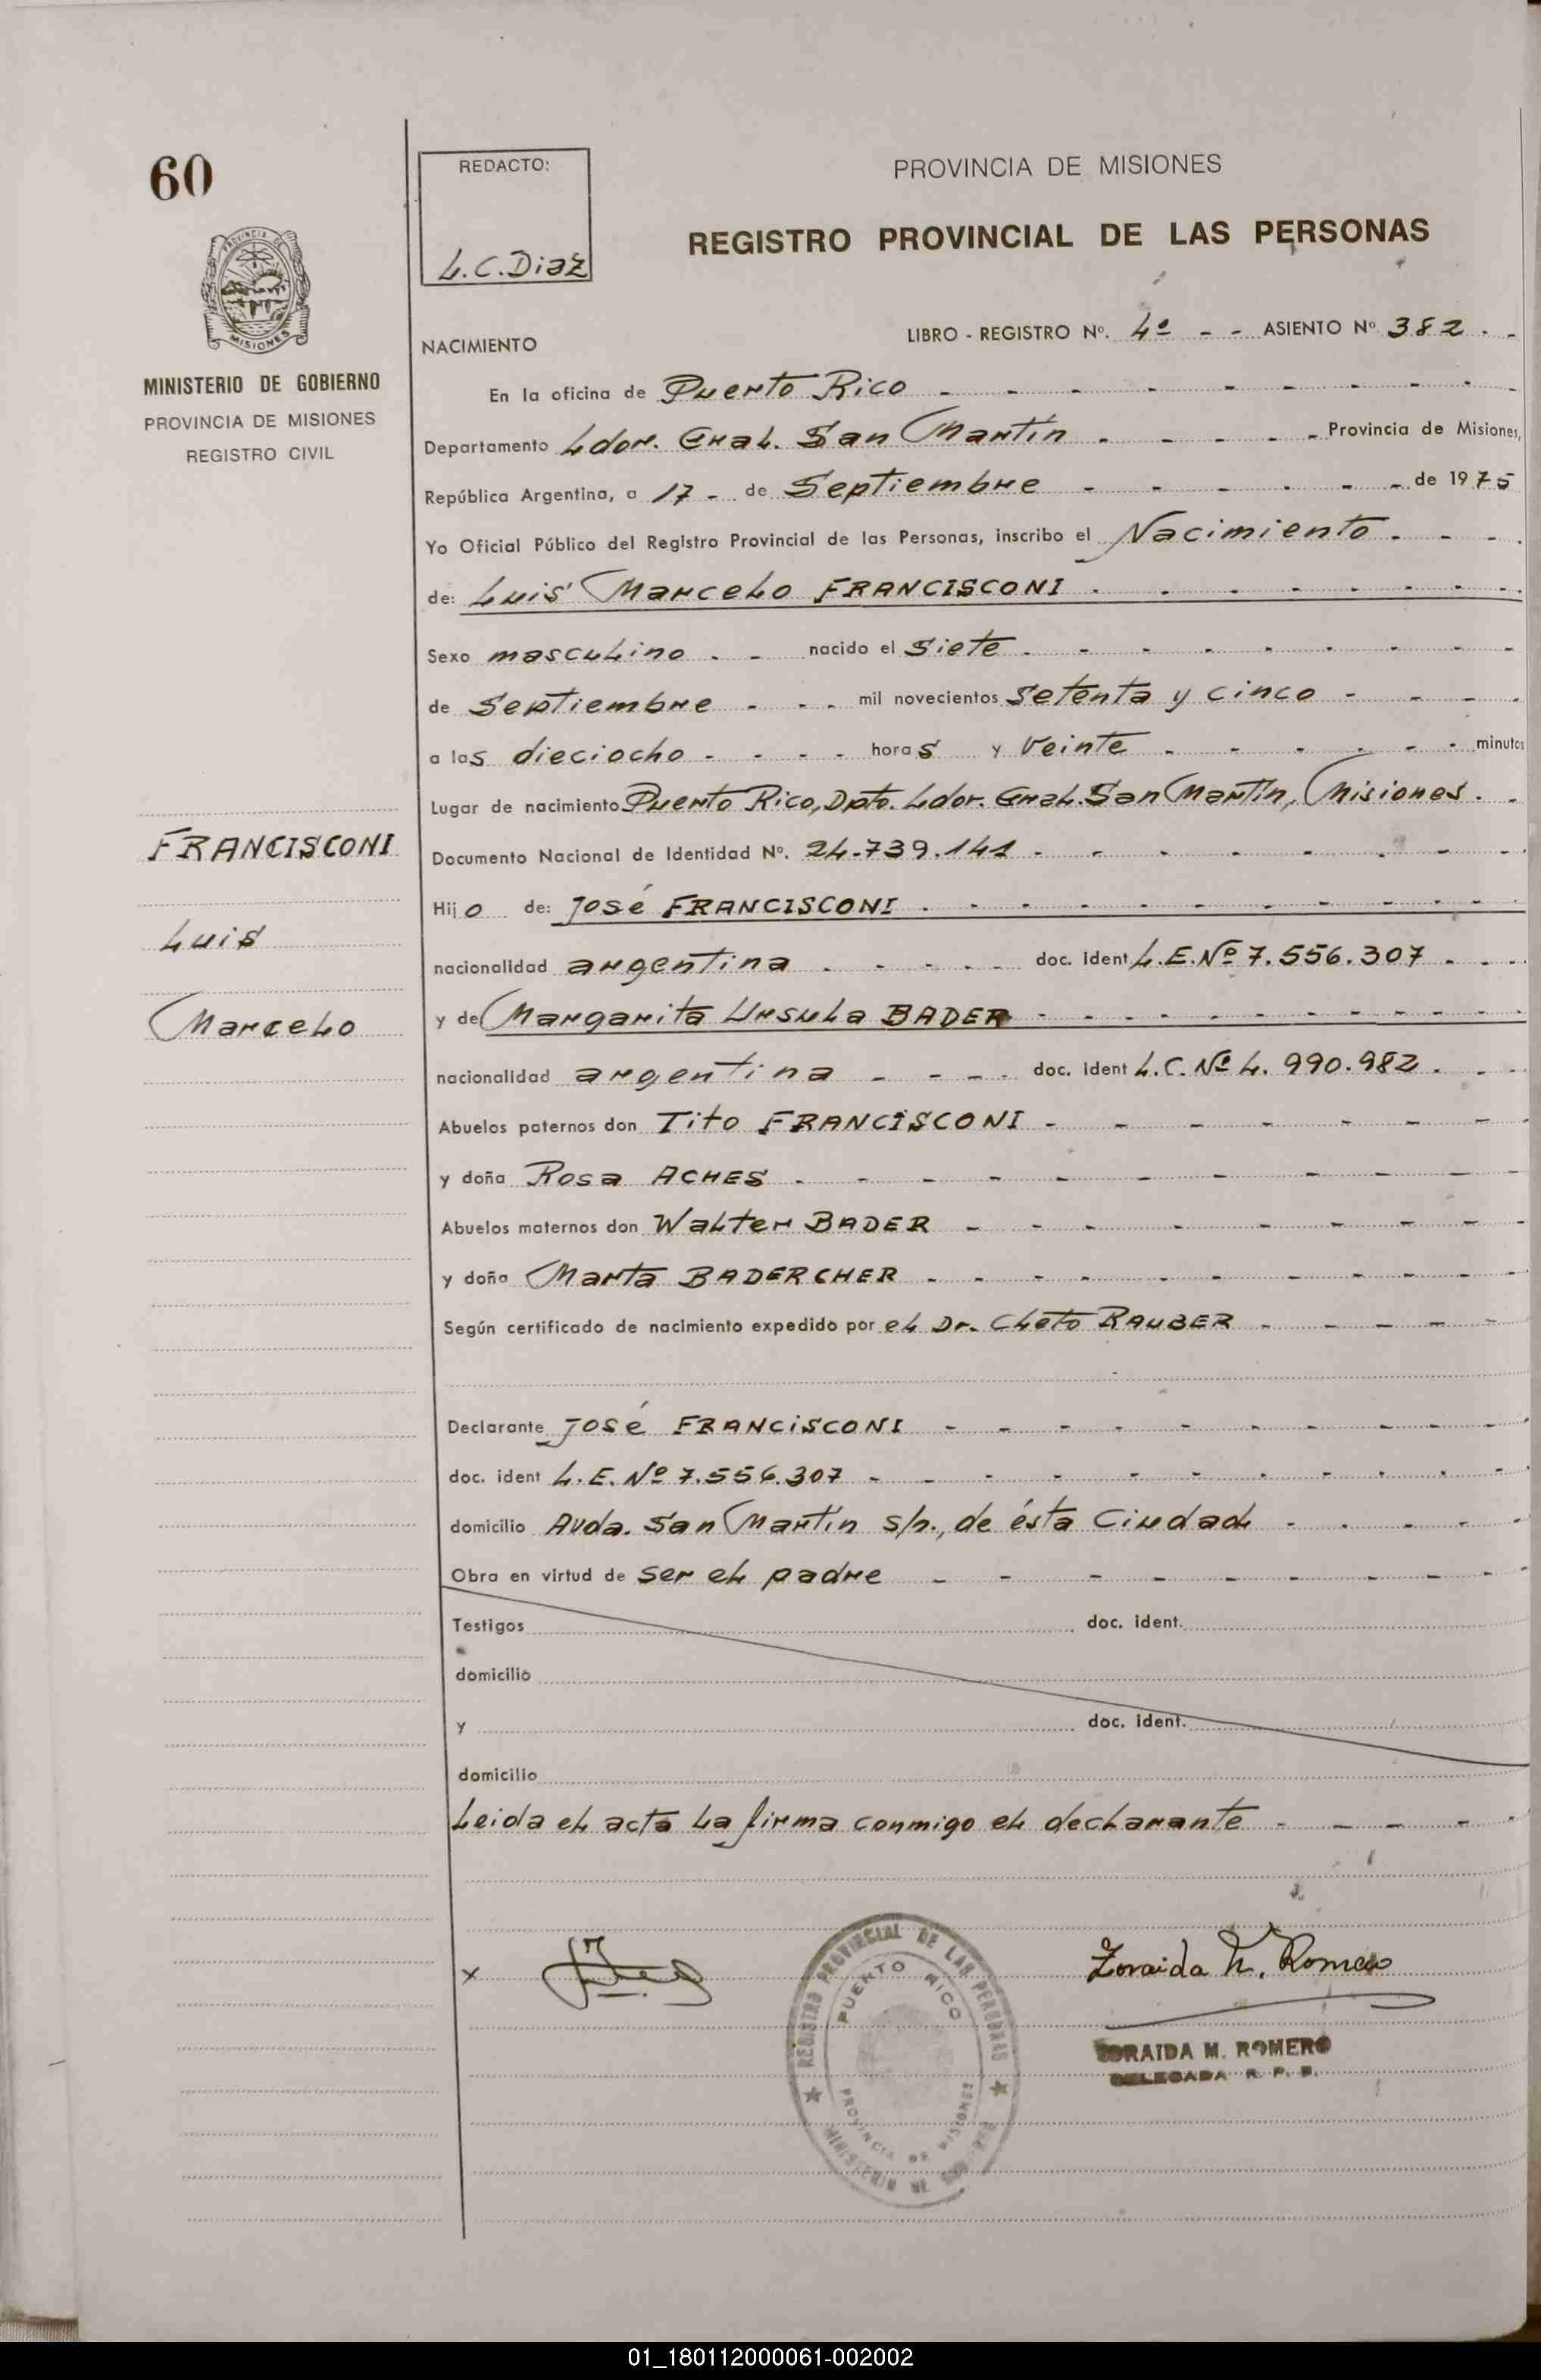 60
REDACTO:
L.C. Diaz
PROVINCIA DE MISIONES
REGISTRO PROVINCIAL DE LAS PERSONAS
PROVINCIA DE
MISIONES
MINISTERIO DE GOBIERNO
PROVINCIA DE MISIONES
REGISTRO CIVIL
NACIMIENTO
LIBRO - REGISTRO Nº. 4º - - ASIENTO Nº 382 - -
En la oficina de Puerto Rico
Departamento Ldor. Gral. San Martín - - - - - Provincia de Misiones,
República Argentina, a 17 - de Septiembre - - - - - - de 1975
Yo Oficial Público del Registro Provincial de las Personas, inscribo el Nacimiento
de: Luis Marcelo FRANCISCONI
Sexo masculino - - nacido el siete
de Septiembre - - - mil novecientos setenta y cinco
a las dieciocho - - - - horas y veinte - - - - - - minutos
Lugar de nacimiento Puerto Rico, Dpto. Ldor. Gral. San Martín, Misiones.
Documento Nacional de Identidad Nº. 24.739.141
Hijo de: José FRANCISCONI
nacionalidad argentina - - - - - doc. ident L.E. Nº 7.556.307
y de Margarita Ursula BADER
nacionalidad argentina - - - - doc. ident L.C. Nº 4.990.982
Abuelos paternos don Tito FRANCISCONI
y doña Rosa ACHES
Abuelos maternos don Walter BADER
y doña Marta BADERCHER
Según certificado de nacimiento expedido por el Dr. Cleto RAUBER
Declarante José FRANCISCONI
doc. ident L.E. Nº 7.556.307
domicilio Avda. San Martín s/n., de ésta Ciudad
Obra en virtud de ser el padre
Testigos doc. ident.
domicilio
y doc. ident.
domicilio
Leida el acta la firma conmigo el declarante
FRANCISCONI
Luis
Marcelo
x
REGISTRO PROVINCIAL DE LAS PERSONAS
PUERTO RICO
PROVINCIA DE MISIONES
Zoraida M. Romero
ZORAIDA M. ROMERO
DELEGADA R. P. P.
01_180112000061-002002